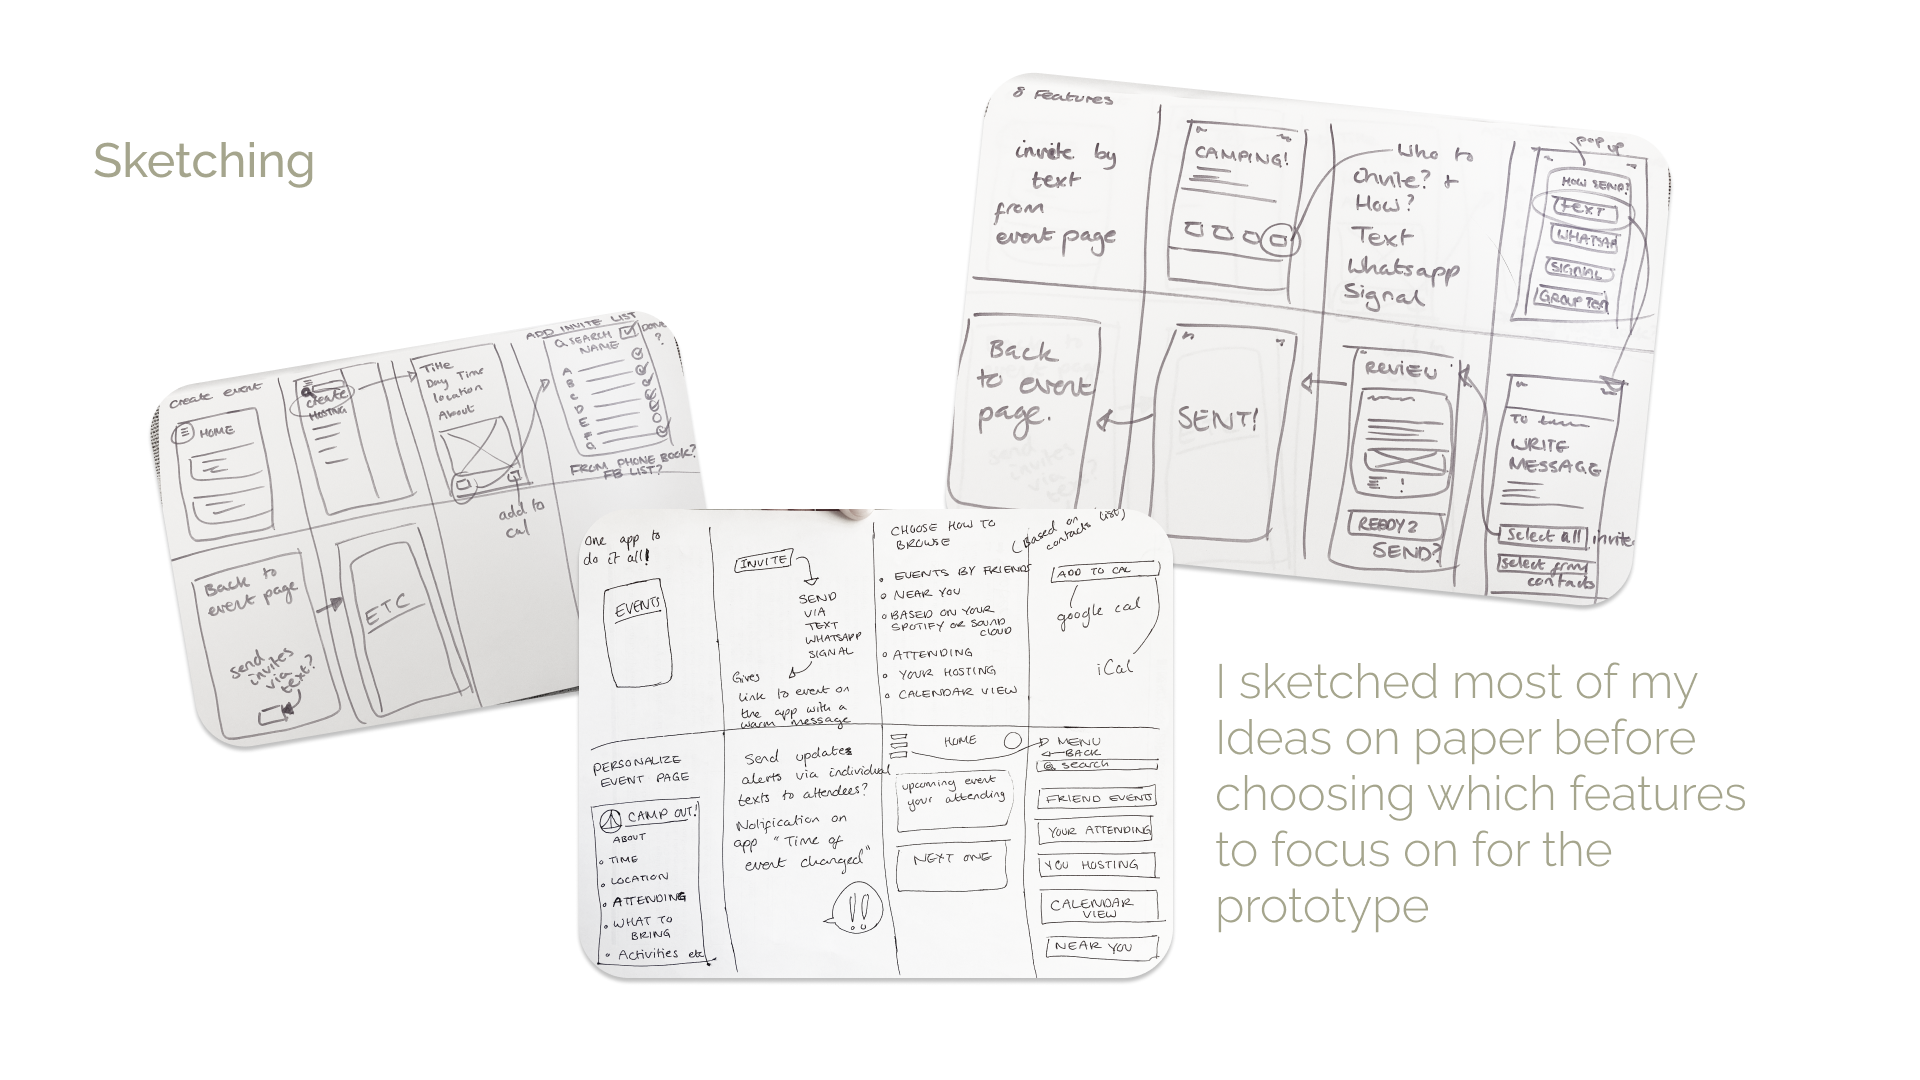 Sketching
8 Features
invite by
text
from
event page
CAMPING!
Who to
invite? +
How?
Text
Whatsapp
Signal
pop up
HOW SEND?
TEXT
WHATSAP
SIGNAL
GROUP TEXT
Back
to event
page.
SENT!
REVIEW
!
READY 2
SEND?
TO
WRITE
MESSAGE
Select all invite
select from
contacts
create event
HOME
create
HOSTING
Title
Day Time
location
About
add to
cal
ADD INVITE LIST
SEARCH
NAME
DONE
?
A
B
C
D
E
F
G
FROM PHONE BOOK?
FB LIST?
Back to
event page
send
invites
via
text?
ETC
One app to
do it all!
EVENTS
INVITE
SEND
VIA
TEXT
WHATSAPP
SIGNAL
Gives
link to event on
the app with a
warm message
CHOOSE HOW TO
BROWSE
(Based on
contacts list)
EVENTS BY FRIENDS
NEAR YOU
BASED ON YOUR
SPOTIFY OR SOUND
CLOUD
ATTENDING
YOUR HOSTING
CALENDAR VIEW
ADD TO CAL
google cal
iCal
PERSONALIZE
EVENT PAGE
CAMP OUT!
ABOUT
TIME
LOCATION
ATTENDING
WHAT TO
BRING
Activities etc
Send updates
alerts via individual
texts to attendees?
Notification on
app "Time of
event changed"
!!
HOME
upcoming event
your attending
NEXT ONE
MENU
BACK
search
FRIEND EVENTS
YOUR ATTENDING
YOU HOSTING
CALENDAR
VIEW
NEAR YOU
I sketched most of my
Ideas on paper before
choosing which features
to focus on for the
prototype